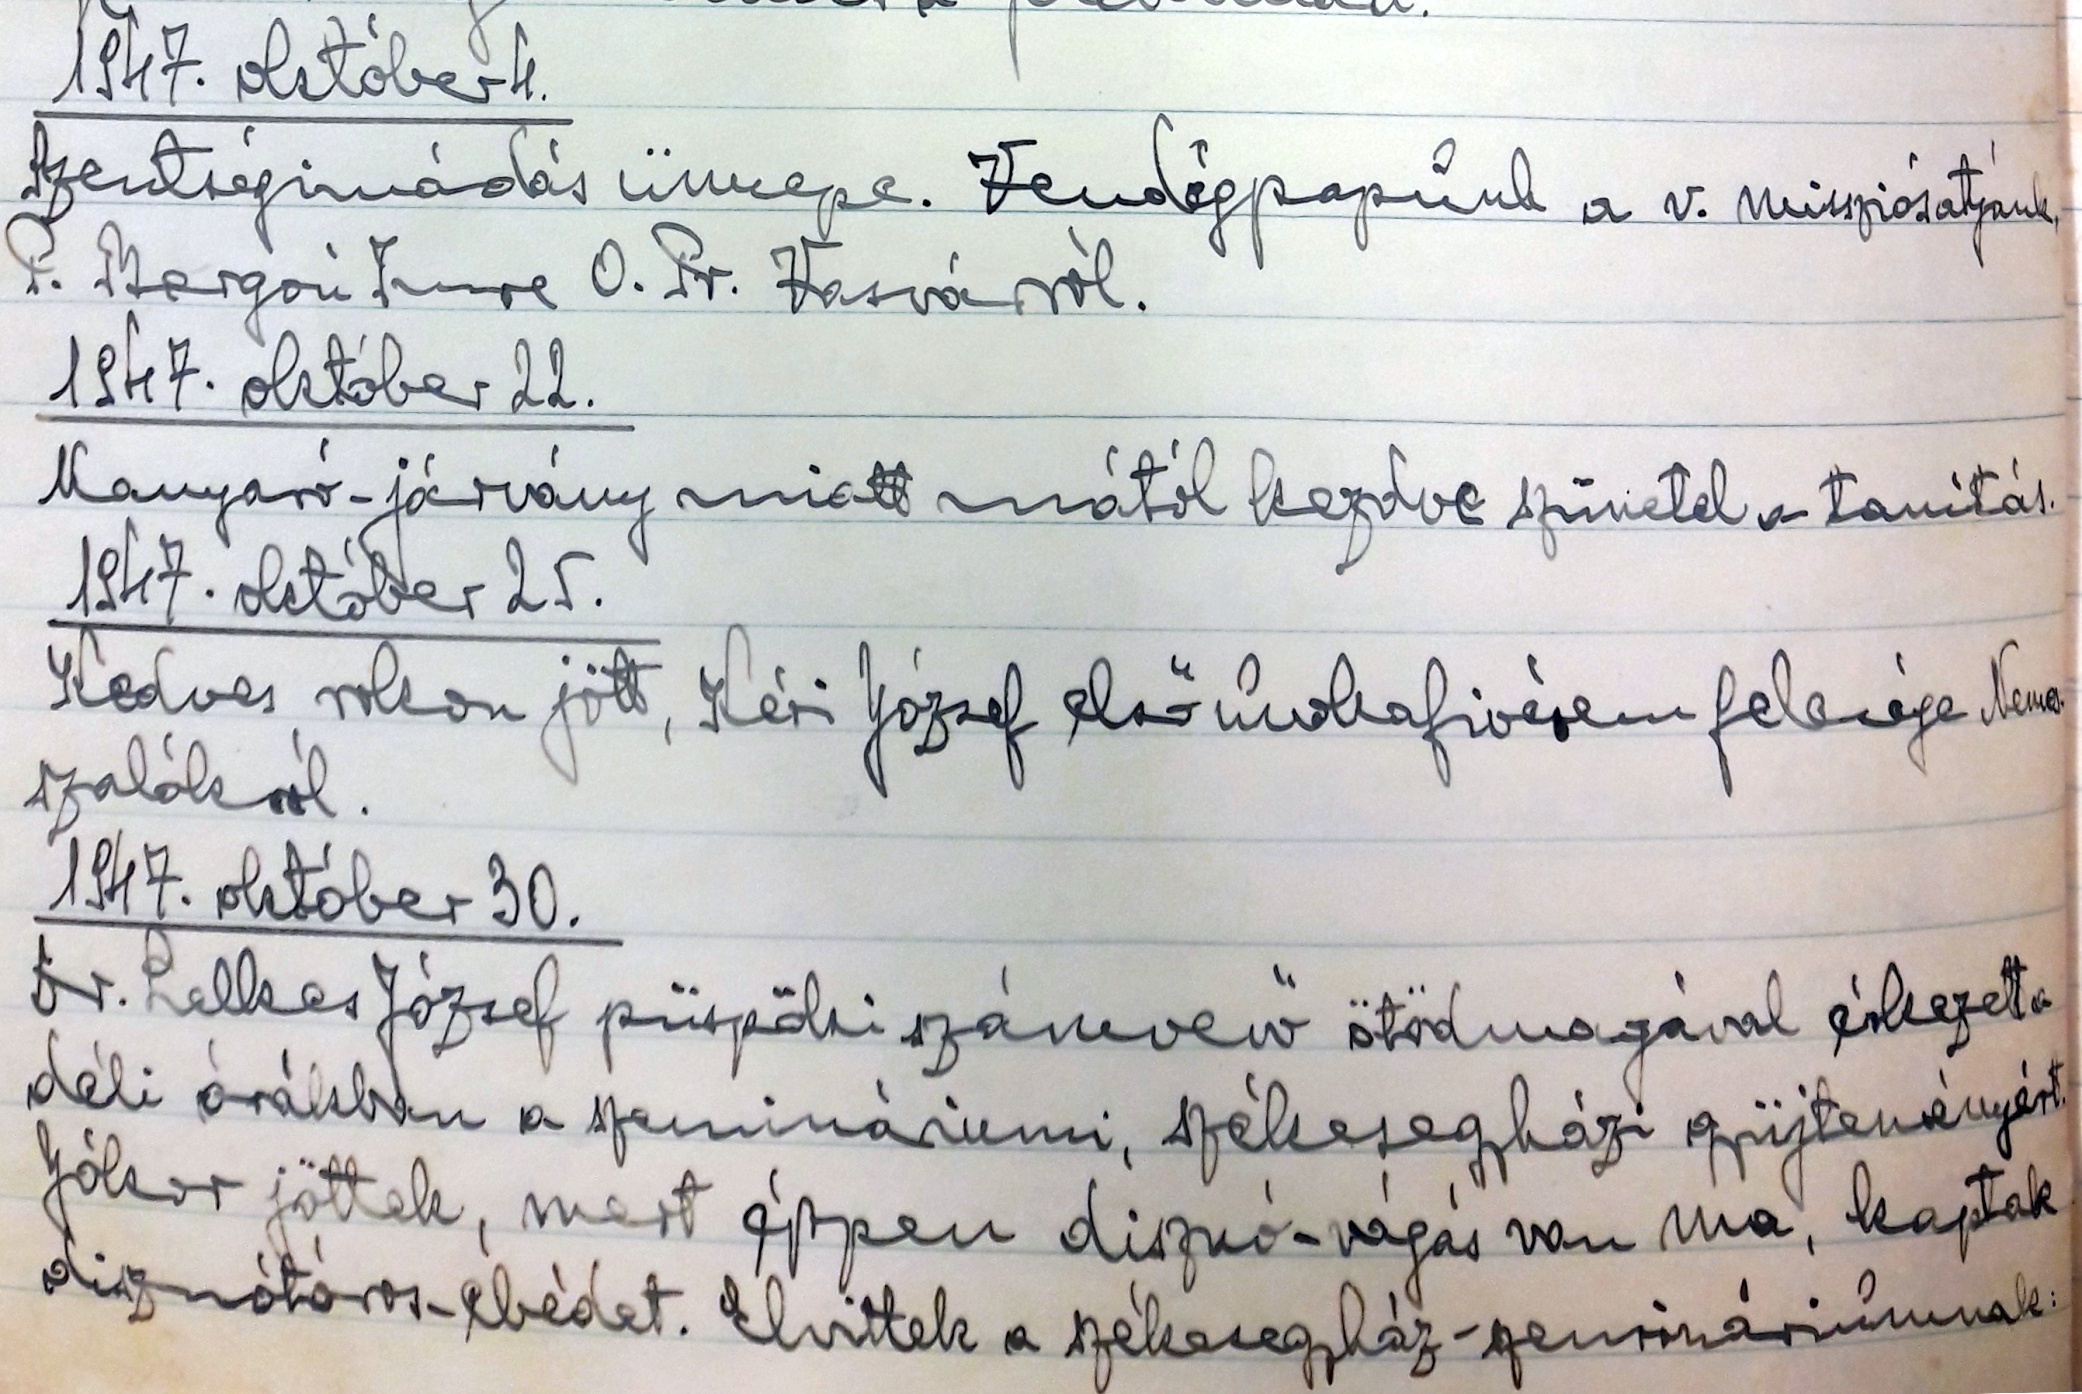 1947. október 4.
Szentségimádás ünnepe. Vendégpapunk a v. missziósatyánk,
P. Imre O. Pr. Vasvárról.
1947. október 22.
Kanyaró-járvány miatt mától kezdve szünetel a tanítás.
1947. október 25.
Kedves rokon jött, Kéri József elsőunokafivérem felesége Nemes-
szalókról.
1947. október 30.
Dr. Lelkes József püspöki számvevő ötödmagával érkezett a
déli órákban a szemináriumi, székesegyházi gyüjteményért.
Jókor jöttek, mert éppen disznó-vágás van ma, kaptak
disznótoros-ebédet. Elvittek a székesegyház-szemináriumnak: